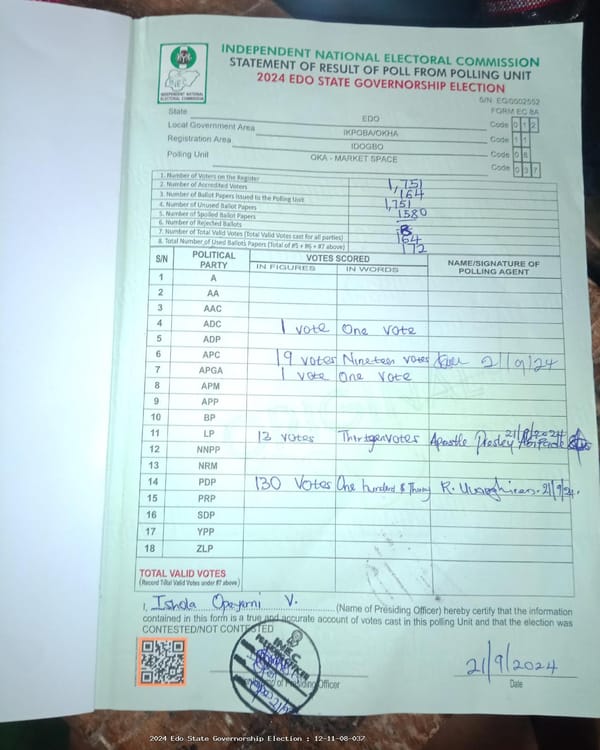 INDEPENDENT NATIONAL ELECTORAL COMMISSION
STATEMENT OF RESULT OF POLL FROM POLLING UNIT
2024 EDO STATE GOVERNORSHIP ELECTION
INEC
INDEPENDENT NATIONAL ELECTORAL COMMISSION
S/N: EG/0002552
FORM EC 8A
State EDO Code 0 1 2
Local Government Area IKPOBA/OKHA Code 1 1
Registration Area IDOGBO Code 0 8
Polling Unit OKA - MARKET SPACE Code 0 3 7
1. Number of Voters on the Register 1,751
2. Number of Accredited Voters 164
3. Number of Ballot Papers Issued to the Polling Unit 1,751
4. Number of Unused Ballot Papers 1580
5. Number of Spoiled Ballot Papers
6. Number of Rejected Ballots
7. Number of Total Valid Votes (Total Valid Votes cast for all parties) 164
8. Total Number of Used Ballots Papers (Total of #5 + #6 + #7 above) 172
S/N POLITICAL PARTY VOTES SCORED NAME/SIGNATURE OF POLLING AGENT
IN FIGURES IN WORDS
1 A
2 AA
3 AAC
4 ADC 1 vote One vote
5 ADP
6 APC 19 votes Nineteen votes 21/9/24
7 APGA 1 vote One vote
8 APM
9 APP
10 BP
11 LP 13 votes Thirteen votes Apostle Presley 21/9/2024
12 NNPP
13 NRM
14 PDP 130 Votes One hundred & Thirty R. 21/9/24.
15 PRP
16 SDP
17 YPP
18 ZLP
TOTAL VALID VOTES
(Record Total Valid Votes under #7 above)
I, Ishola Opeyemi V. (Name of Presiding Officer) hereby certify that the information
contained in this form is a true and accurate account of votes cast in this polling Unit and that the election was
CONTESTED/NOT CONTESTED
INEC
21/9/2024
of Presiding Officer
Date
2024 Edo State Governorship Election : 12-11-08-037